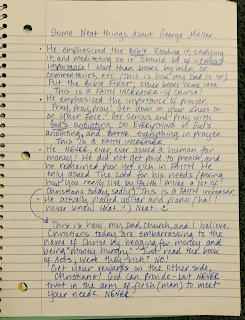 Some Neat things about George Muller.
• He emphasized the Bible. Reading it, studying
it, and meditating on it should be of utmost
importance! More than books by men, or
commentaries, etc. (this is how my dad is so)
Put the Bible First, other books being last.
This is a FAITH INCREASER, of course!
• He emphasized the importance of prayer.
Pray, Pray, Pray! Get down on your knees or
on your face. Be serious and pray with
God's anointing. Do EVERYTHING in God's
anointing, and BATHE everything in prayer.
This is a FAITH INCREASER.
• He NEVER, ever, ever asked a human for
money! He did not get paid to preach, and
he remained poor yet rich in FAITH. He
only asked The Lord for his needs (having
your needs live by faith! Unlike a lot of
Christians today, sadly.) This is a FAITH increaser
• He actually played guitar and piano (ha!
never knew that!) Neat
This is how my dad, church, and I believe.
Christians today are embarrassing to the
name of Christ by begging for money and
being "money hungry". Just read the book
of Acts. Were they rich? NO!
Get your rewards on the other side,
Christians! God can provide - but NEVER
trust in the arm of flesh (man) to meet
your needs. NEVER!